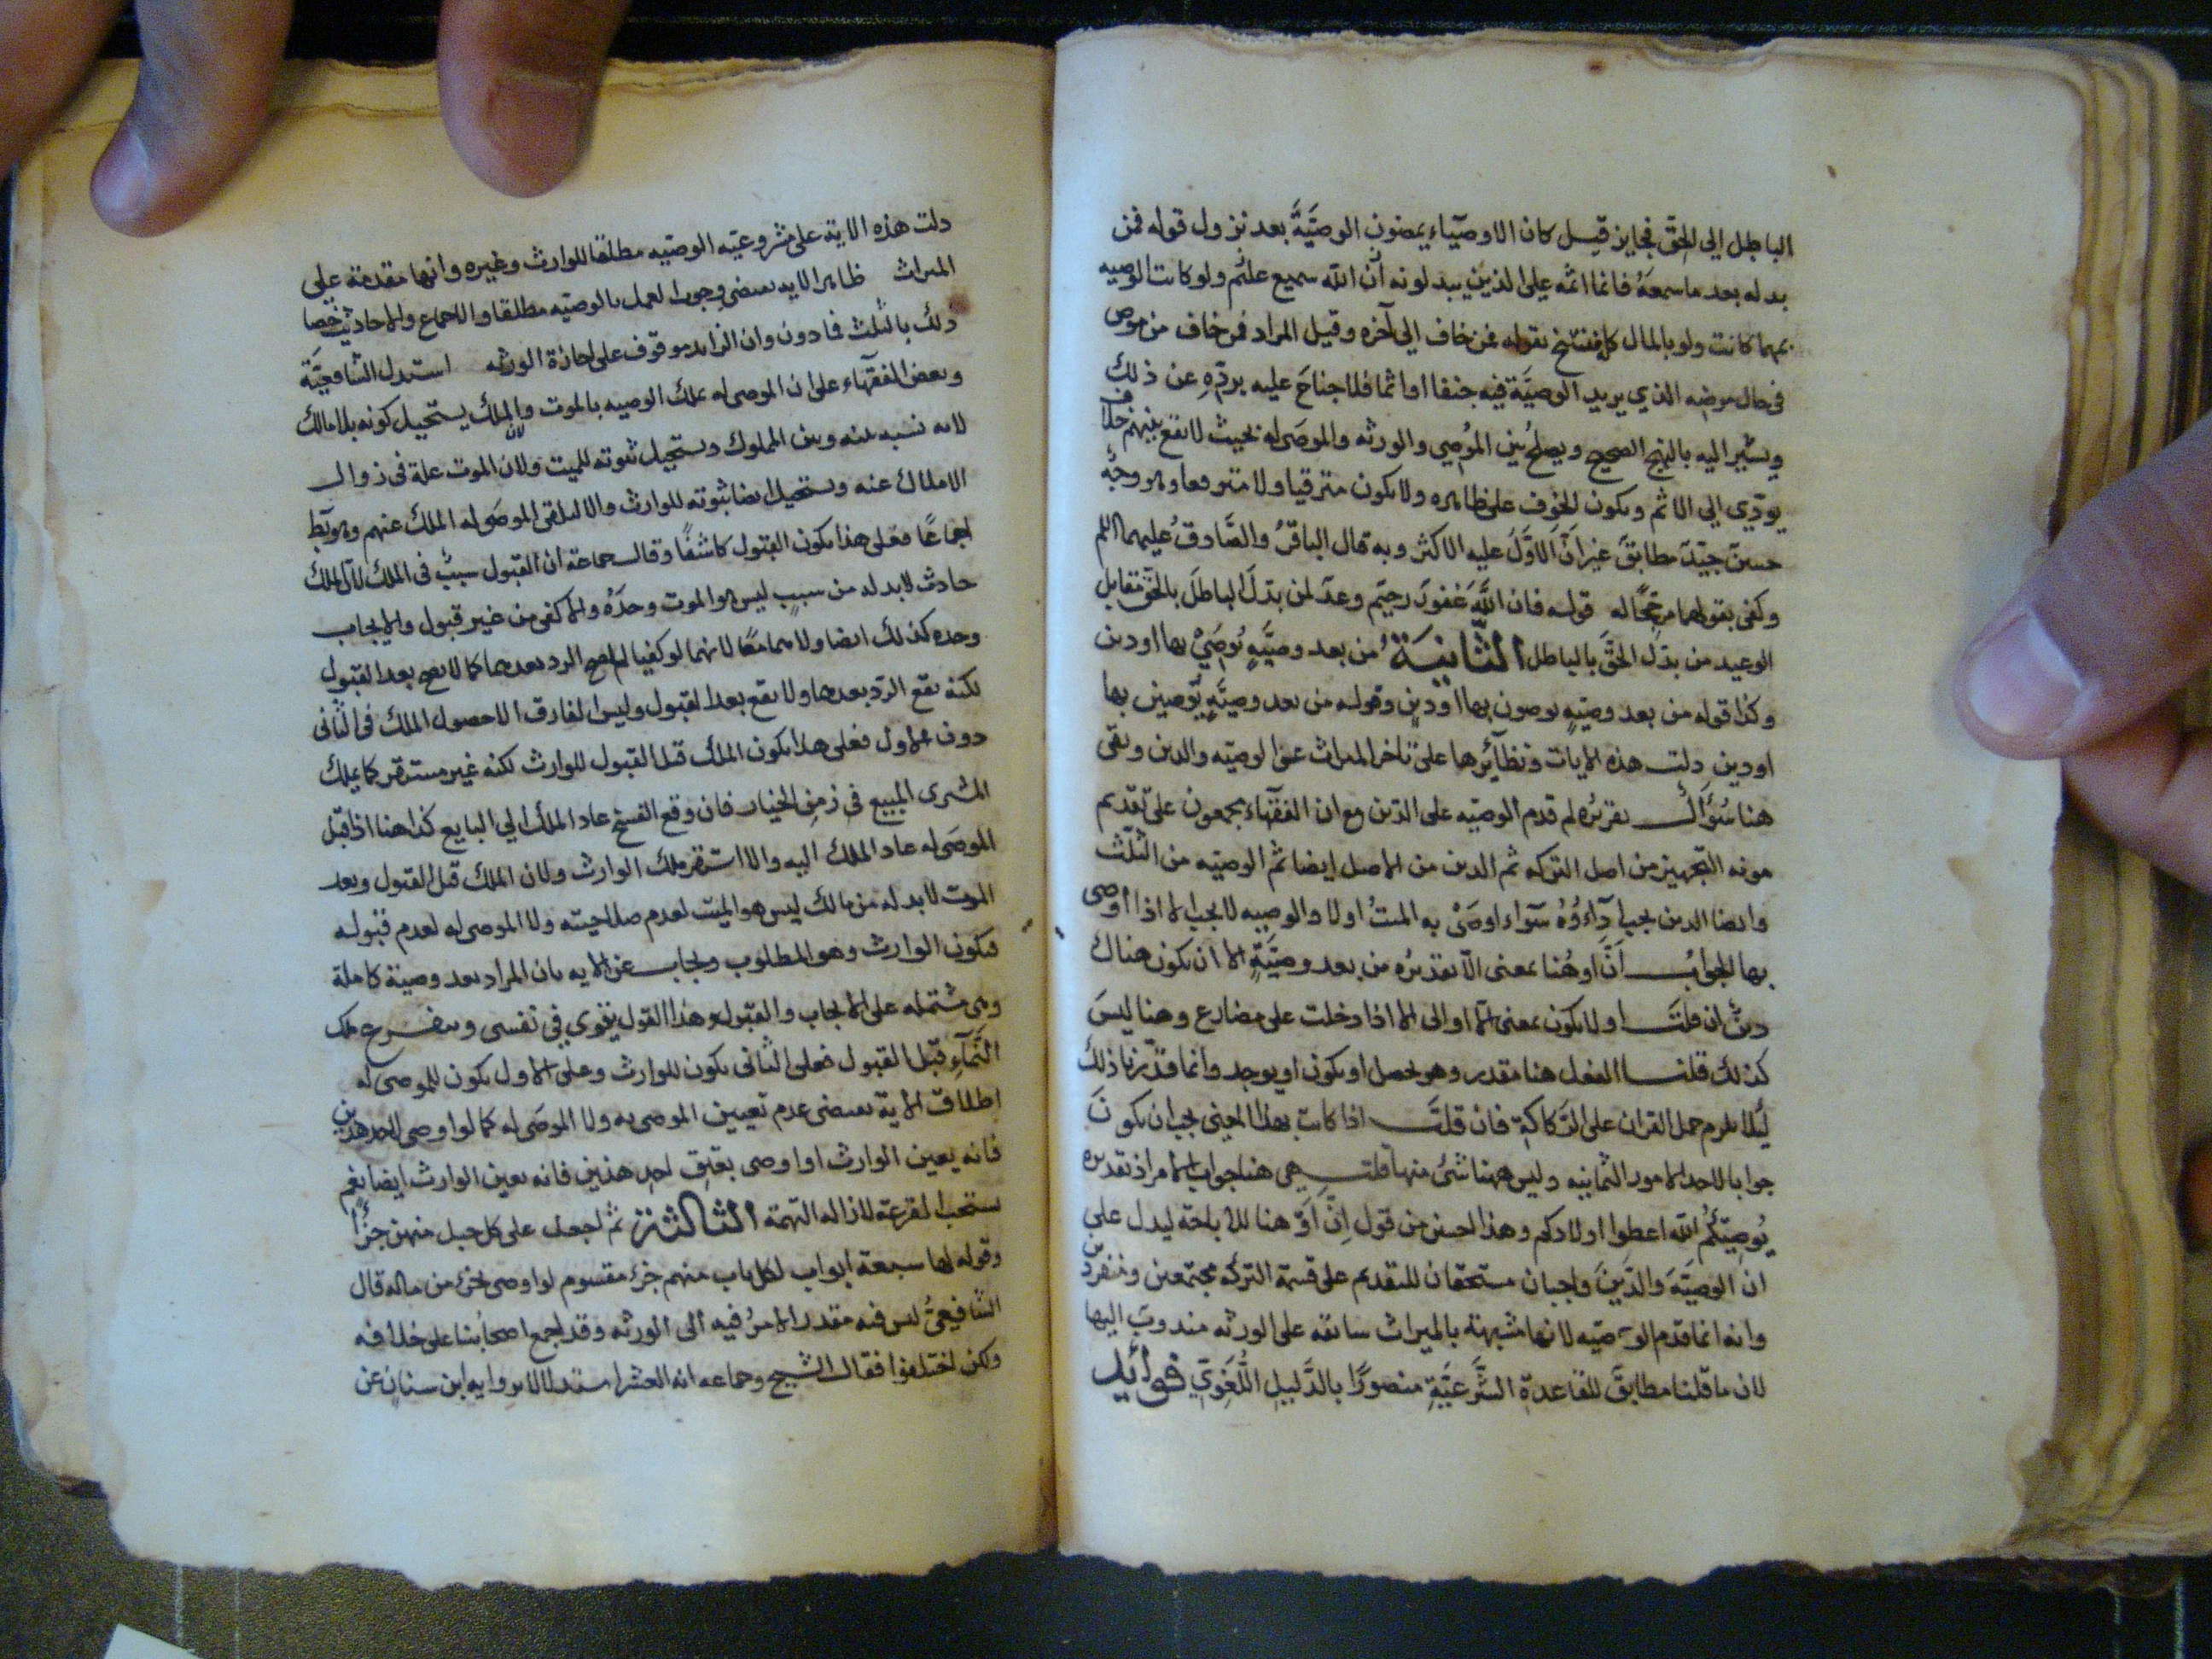 الباطل الي الحق فجايز قيل كان الاوصيآء يمضون الوصيَّةَ بعد نزول قوله فمن
بدله بعد ما سمعَهُ فانما اثمه على الذين يبدلونه أن الله سميع عليم ولو كانت الوصيه
بمهما كانت ولو بالمال كله فنسخ بقوله فمن خاف الي آخره وقيل المراد فمن خاف من موص
في حال مرضه الذي يريد الوصيَّة فيه جنفا او اثما فلا جناحَ عليه بردّهِ عن ذلك
ويشير اليه بالنهج الصحيح ويصلحُ بين المُوصِي والورثه والموصَى له بحيث لا يقع بينهم خلاف
يودّي الي الاثم ويكون الخوف على ظاهره ولا يكون مترقبا ولا متوقعا وهو وجهٌ
حسنٌ جيّدٌ مطابقٌ غير أنّ الاوَّلَ عليه الاكثر وبه قال الباقرُ والصَّادقُ عليهما السلم
وكفى بقولهما مرجّحًا له قوله فان اللَّهَ غفورٌ رحيمٌ وعدٌ لمن بدّلَ الباطلَ بالحقّ مقابل
الوعيد من بدّل الحقَّ بالباطل الثَّانيَةُ من بعد وصيَّةٍ يُوصَيْ بها او دين
وكذا قوله من بعد وصيّةٍ يوصون بها او دينٍ وقوله من بعد وصيَّةٍ يُوصين بها
او دينٍ دلت هذه الايات ونظآئرها على تاخر الميراث عن الوصيّه والدين وبقى
هنا سُؤالٌ تقريرُه لم قدم الوصيّه على الدّين مع ان الفقهآء يجمعون على تقديم
مونه التجهيز من اصل التركه ثم الدين من الاصل ايضا ثم الوصيّه من الثلث
وايضا الدين يجب آدآءوُهُ سوآء اوصَىْ به الميتُ او لا والوصيه لا يجب الا اذا أوصى
بها الجوابُ أنَّ او هُنا بمعنى الّا تقديرُه من بعد وصيَّةٍ الا ان يكون هناك
دينٌ ان قلتَ او لا يكون بمعنى الّا او الى الا اذا دخلت على مضارع وهنا ليسَ
كذلك قلنا الفعل هنا مقدر وهو يحصل او يكون او يوجد وانما قدّرنا ذلك
ليلا يلزم حمل القران على الرَّكاكة فان قلتَ اذا كانت بهذا المعنى يجب ان يكونَ
جوابا لاحد الامور الثمانيه وليس ههنا شئ منها قلت هي هنا جواب الامر اذ تقديره
يُوصِيكُمُ الله اعطوا اولادكم وهذا احسن من قول انّ أوْ هنا للاباحة ليدل على
ان الوصيَّةَ والدَّينَ واجبان مستحقان للتقديم على قسمة التركه مجتمعين ومنفردين
وانه انما قدم الوصيّه لانها مشبهة بالميراث سابقه على الورثه مندوبٌ اليها
لان ما قلنا مطابقٌ للقاعدة الشَّرعيَّةِ منصورًا بالدَّليلِ اللُّغَوِيّ فوائد
دلت هذه الاية على مشروعيّه الوصيّه مطلقا للوارث وغيره وانها مقدمة على
الميراث ظاهر الايه يقتضي وجوب العمل بالوصيّه مطلقا والاجماع والاحاديث خصا
ذلك بالثلث فما دون وان الزايد موقوف على اجازة الورثه استدل الشافعيَّة
وبعض الفقهآء على ان الموصى له يملك الوصيه بالموت والملك يستحيل كونه بلا مالك
لانه نسبه بينه وبين المملوك ويستحيل ثبوته للميت ولانّ الموت علة فى زوال
الاملاك عنه ويستحيل ايضا ثبوته للوارث والا لتلقى الموصَى له الملك عنهم وهو بط
اجماعًا فعلى هذا يكون القبول كاشفًا وقال جماعة ان القبول سببٌ فى الملك لان الملك
حادث لا بد له من سببٍ ليس هو الموت وحدَهُ والا كفى من غير قبول والايجاب
وحده كذلك ايضا ولا هما معًا لانهما لو كفيا لم يصح الرد بعدهما كما لا يصح بعد القبول
لكنه يقع الردّ بعدهما ولا يقع بعد القبول وليس الفارق الا حصول الملك فى الثانى
دون الاول فعلى هذا يكون الملك قبل القبول للوارث لكنه غير مستقر كما يملك
المشترى المبيع فى زمن الخيار فان وقع الفسخ عاد الملك الي البايع كذا هنا اذا قبل
الموصَى له عاد الملك اليه والا استقر ملك الوارث ولان الملك قبل القبول وبعد
الموت لا بد له من مالك ليس هو الميت لعدم صلاحيته ولا الموصى له لعدم قبوله
فيكون الوارث وهو المطلوب ويجاب عن الايه بان المراد بعد وصية كاملة
وهى مشتمله على الايجاب والقبول وهذا القول يقوي في نفسى ويتفرع ملك
النَّمآءِ قبل القبول فعلى الثانى يكون للوارث وعلى الاول يكون للموصى له
اطلاق الاية يقتضى عدم تعيين الموصى به ولا الموصَى له كما لو اوصى لاحد هذين
فانه يعين الوارث او اوصى بعتق احد هذين فانه يعين الوارث ايضا نعم
يستحب القرعة لازاله التهمة الثالثة ثم اجعل على كل جبل منهن جزًا
وقوله لها سبعة ابواب لكل باب منهم جزء مقسوم لو اوصى بجزء من ماله قال
الشافعيُّ ليس فيه مقدر الامرُ فيه الى الورثه وقد اجمع اصحابُنا على خلافه
ولكن اختلفوا فقال الشيخ وجماعه انه العشر استدلالا بروايه ابن سنان عن